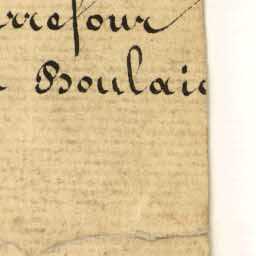 arrefour
Houlaie